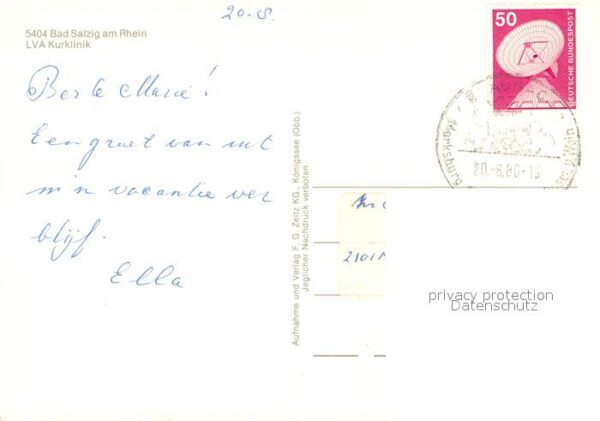 20.8.
5404 Bad Salzig am Rhein
LVA Kurklinik
Beste Marie!
Een groet van uit
m'n vacantie ver
blijf.
Ella
50
DEUTSCHE BUNDESPOST
Marksburg
Rhein
20.-8.80-19
Aufnahme und Verlag F. G. Zeitz KG., Königssee (Obb.)
Jeglicher Nachdruck verboten
privacy protection
Datenschutz